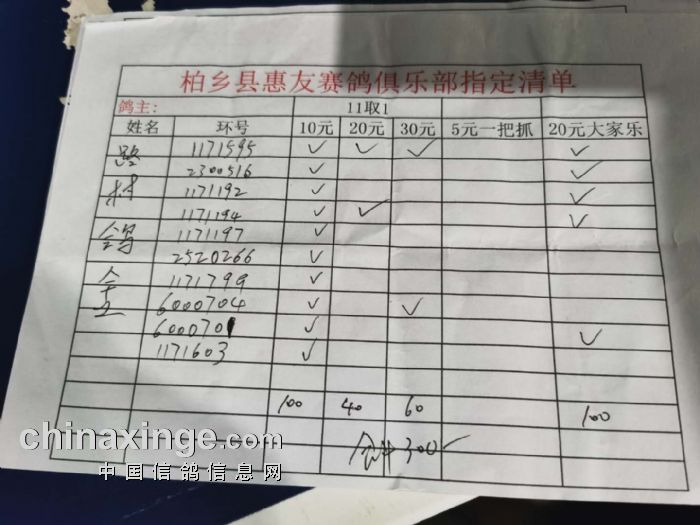 柏乡县惠友赛鸽俱乐部指定清单
鸽主: 11取1
姓名 环号 10元 20元 30元 5元一把抓 20元大家乐
路 1171595 ✓ ✓ ✓ ✓
2300516 ✓ ✓
村 1171192 ✓ ✓
1171194 ✓ ✓ ✓
鸽 1171197 ✓
2520266 ✓
1171799 ✓
6000704 ✓ ✓
6000701 ✓ ✓
1171603 ✓
100 40 60 100
合计 300 ✓
chinaxinge.com
中国信鸽信息网